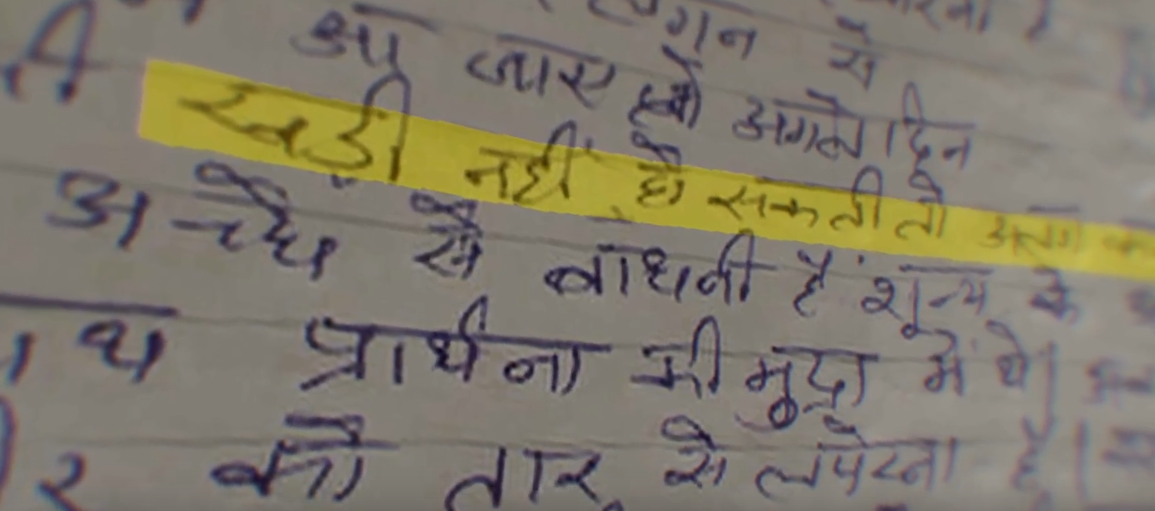 लगन से
आ जाए तो अगले दिन
खड़ी नहीं हो सकती तो अलग
अच्छे से बांधनी है शून्य के
प्रार्थना की मुद्रा में थे।
को तार से लपेटना है।